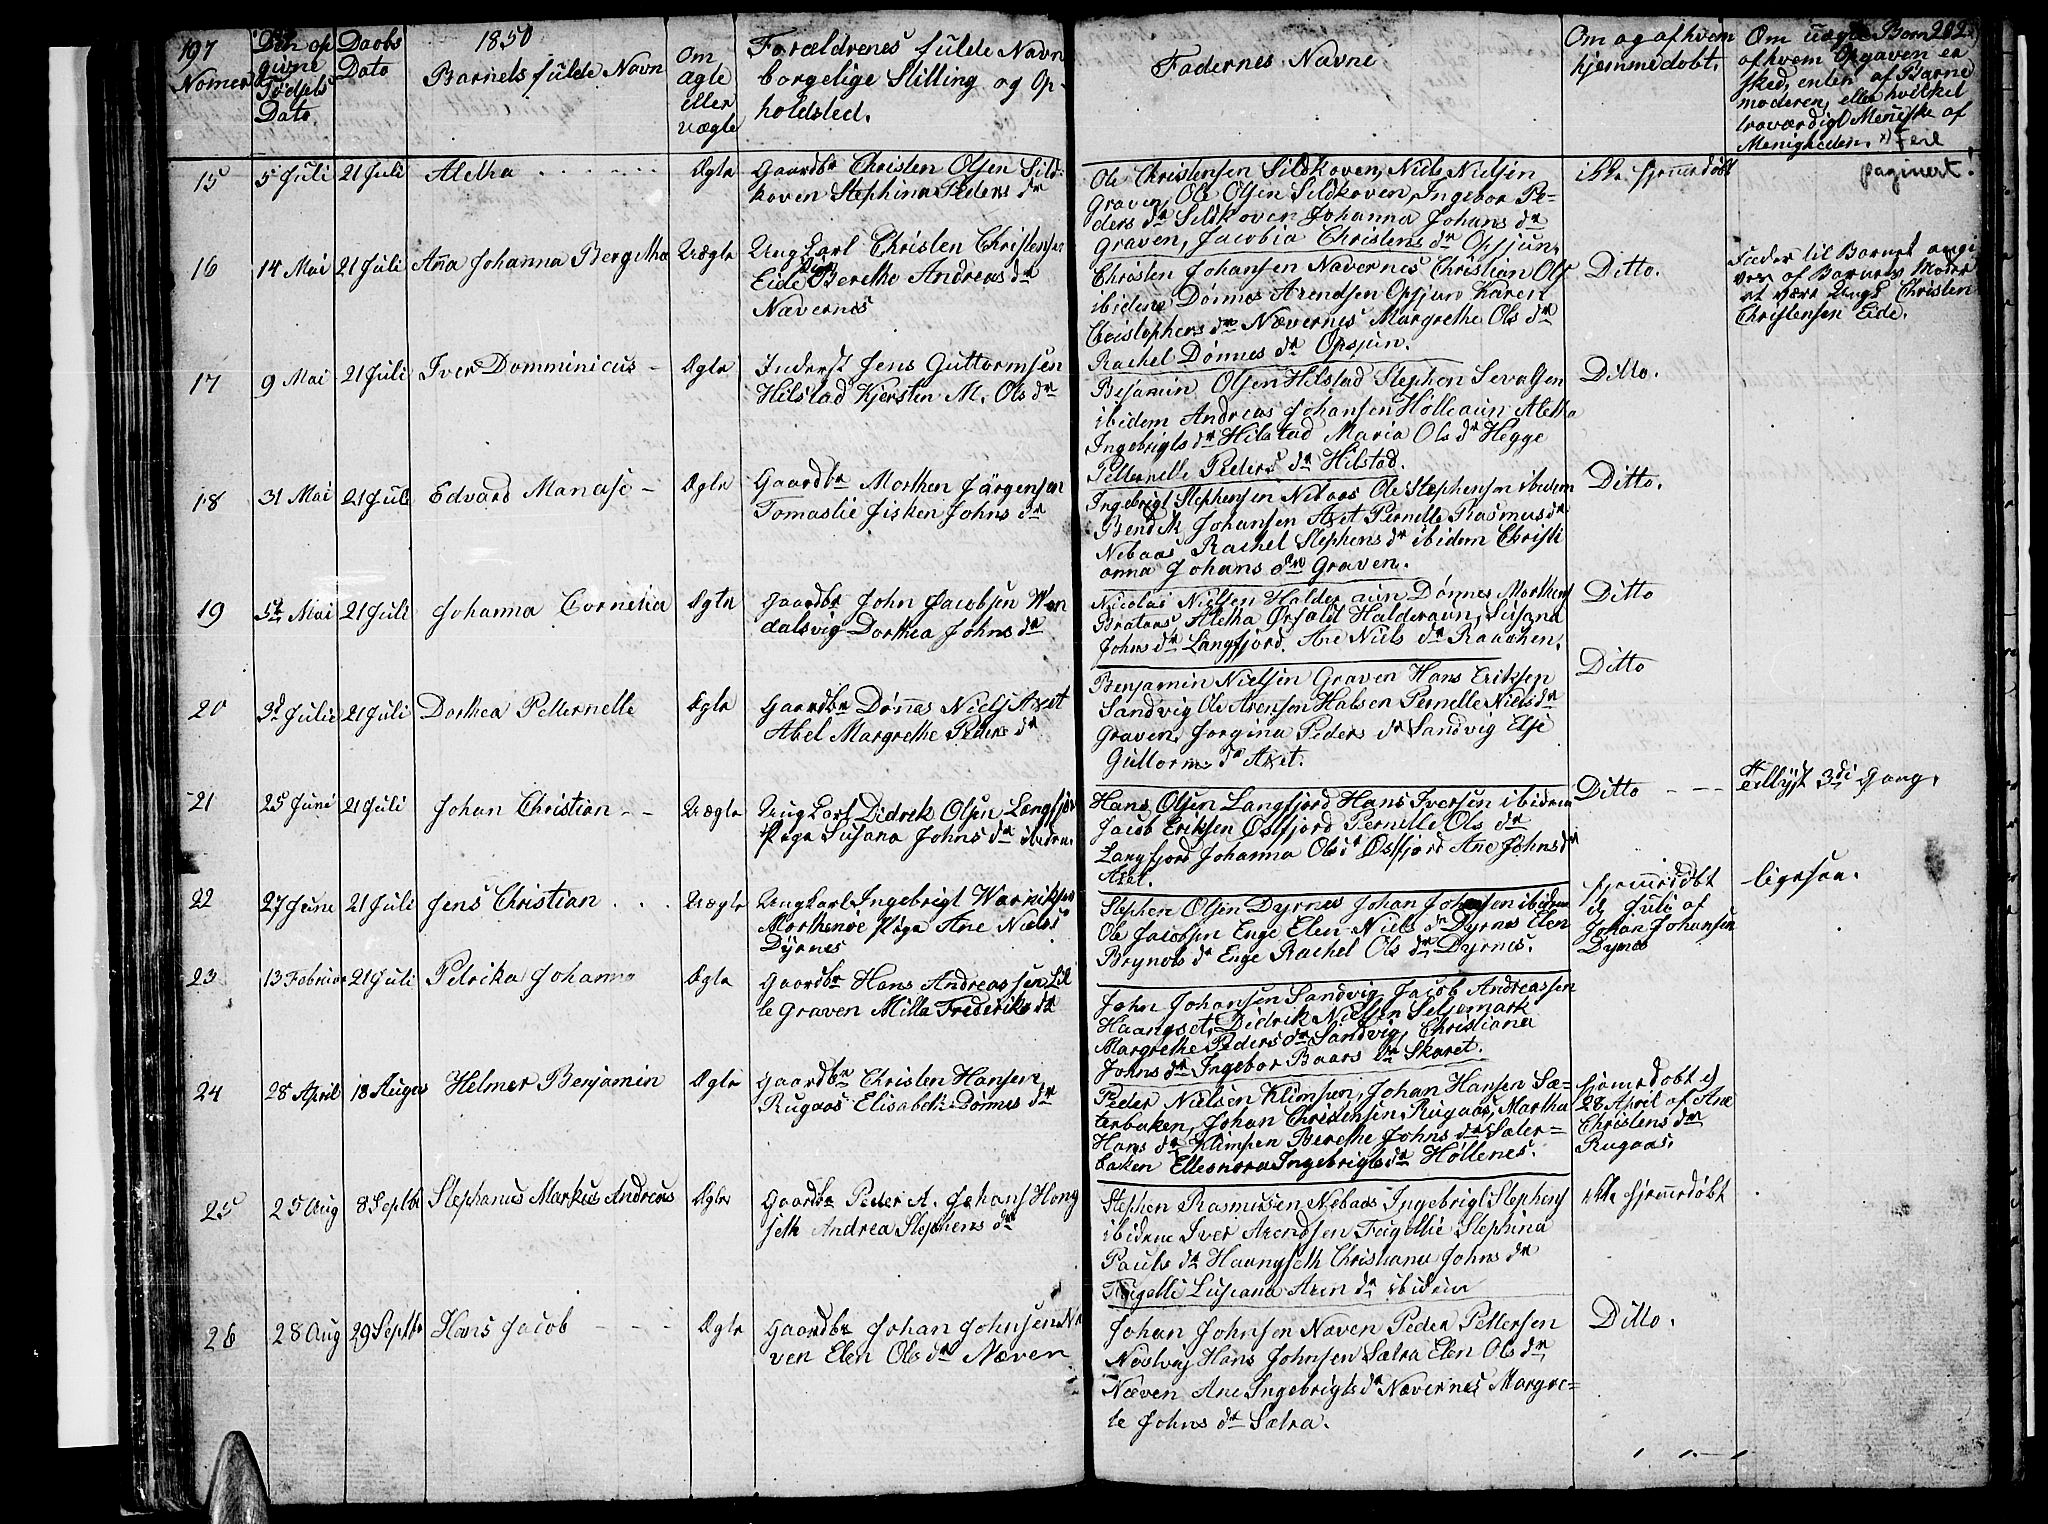 197
Nomer
Den op
givne
Fødsels
Dato
Daabs
Dato
1850
Barnets fulde Navn
Om
ægte
eller
uægte
Forældrenes fulde Navn
borgelige Stilling og Op-
holdsted.
Fadernes Navne
Om og af hvem
hjemmedøbt.
Om uægte Barn 202
af hvem Opgaven er
sked, enten af Barne
moderen, eller hvilket
troværdigt Meniske af
Menigheden. x) Feil
paginert!
15 5 Juli 21 Juli Aletha Ægte Gaardbr Christen Olsen Sild-
koven Stephina Peders dr
Ole Christensen Sildkoven, Niels Nielsen
Graven, Ole Olsen Sildkoven, Ingebor Pe=
ders dr Sildkoven Johanna Johans dr
Graven, Jacobia Christens dr Opsjun.
ikke hjemmedøbt
16 14 Mai 21 Juli Aña Johanna Bergitha Uægte Ungkarl Christen Christensen
Eide Berethe Andreas dr
Nævernes
Christen Johansen Nævernes Christian Ols
ibidem Dønnes Arendsen Opsjun Karen
Christophers dr Nævernes Margrethe Ols dr
Rachel Dønnes dr Opsjun.
Ditto.
Fader til Barnet angi
ves af Barnets Moder
at være Ungk Christen
Christensen Eide.
17 9 Mai 21 Juli Iver Domminicus - Ægte Inderst Jens Guttormsen
Hilstad Kjersten M. Ols dr
Bejamin Olsen Hilstad Stephen Sevalsen
ibidem Andreas Johansen Holleaun Aletha
Ingebrigts dr Hilstad Maria Ols dr Hegge
Petternelle Peders dr Hilstad.
Ditto.
18 31 Mai 21 Juli Edvard Manase - Ægte Gaardbr Morthen Jørgensen
Tomaslie Fisken Johns dr
Ingebrigt Stephensen Nebaas Ole Stephensen ibidem
Bendik Johansen Axet Pernelle Rasmus dr
Nebaas Rachel Stephens dr ibidem Christi
anna Johans dr Graven.
Ditto.
19 5te Mai 21 Juli Johanna Cornelia Ægte Gaardbr John Jacobsen Wen
dalsvig Dorthea Johns dr
Nicolai Nielsen Halderaun Dønnes Morthens
Brataas Aletha Ørsald Halderaun, Susana
Johns dr Langfjord. Ane Niels dr Raaaken.
Ditto
20 3d Julie 21 Juli Dorthea Petternelle Ægte Gaardbr Døñes Niels Axet
Abel Margrethe Peders dr
Benjamin Nielsen Graven Hans Eriksen
Sandvig Ole Arensen Halsen Pernelle Niels dr
Graven, Jorgina Peders dr Sandvig Elsе
Guttorms dr Axet.
Ditto
21 25 Juni 21 Juli Johan Christian - - Uægte Ungkarl Didrik Olsen Langfjor
Piga Susana Johns dr ibidem
Hans Olsen Langfjord Hans Iversen ibidem
Jacob Eriksen Østfjord Pernelle Ols dr
Langfjord Johanna Ols dr Østfjord Ane Johns dr
Axet.
Ditto - - -
tillyst 3di Gang.
22 27 Juni 21 Juli Jens Christian . . . Uægte Ungkarl Ingebrigt Warniksen
Morthenøe Piga Ane Niels
Dyrnes
Stephen Olsen Dyrnes Johan Johansen ibidem
Ole Jacobsen Enge Elen Niels dr Dyrnes Elen
Brynols dr Enge Rachel Ols dr Dyrnes.
hjemmedøbt
Juli af
Johan Johansen
Dyrnes
ligesaa.
23 13 Februar 21 Juli Petrika Johanna Ægte Gaardbr Hans Andreassen Lil
le Graven Milla Frederiks dr
John Johansen Sandvig, Jacob Andreassen
Haangset, Didrik Nielsen Seljemark
Margrethe Peders dr Sandvig, Christiana
Johns dr Ingebor Baars dr Skaret.
24 28 April 18 Augus Helmer Benjamin Ægte Gaardbr Christen Hansen
Rugaas Elisabeth Dønnes dr
Peder Nielsen Klimpen, Johan Hansen Sæ=
terbaken, Johan Christensen Rugaas, Martha
Hans dr Klimpen Berethe Johns dr Sæter=
baken Ellesnora Ingebrigts dr Hollenes.
hjemmedøbt
28 April af Ane
Christens dr
Rugaas.
25 25 Aug 8 Septbr Stephanus Markus Andreas Ægte Gaardbr Peder A. Johans Hong
seth Andrea Stephens dr
Stephen Rasmussen Nebaas Ingebrigt Stephens
ibidem Iver Arendsen Fugellie Stephina
Pauls dr Haangseth Christiana Johns dr
Fugelli Lusiana Aren dr ibidem
ikke hjemmedøbt
26 28 Aug 29 Septbr Hans Jacob - - - Ægte Gaardbr Johan Johnsen Næ
ven Elen Ols dr Næven
Johan Johnsen Næven Peder Pettersen
Nøstvig Hans Johnsen Sætra Elen Ols dr
Næven Ane Ingebrigts dr Nævernes Margre=
te Johns dr Sætra.
Ditto.